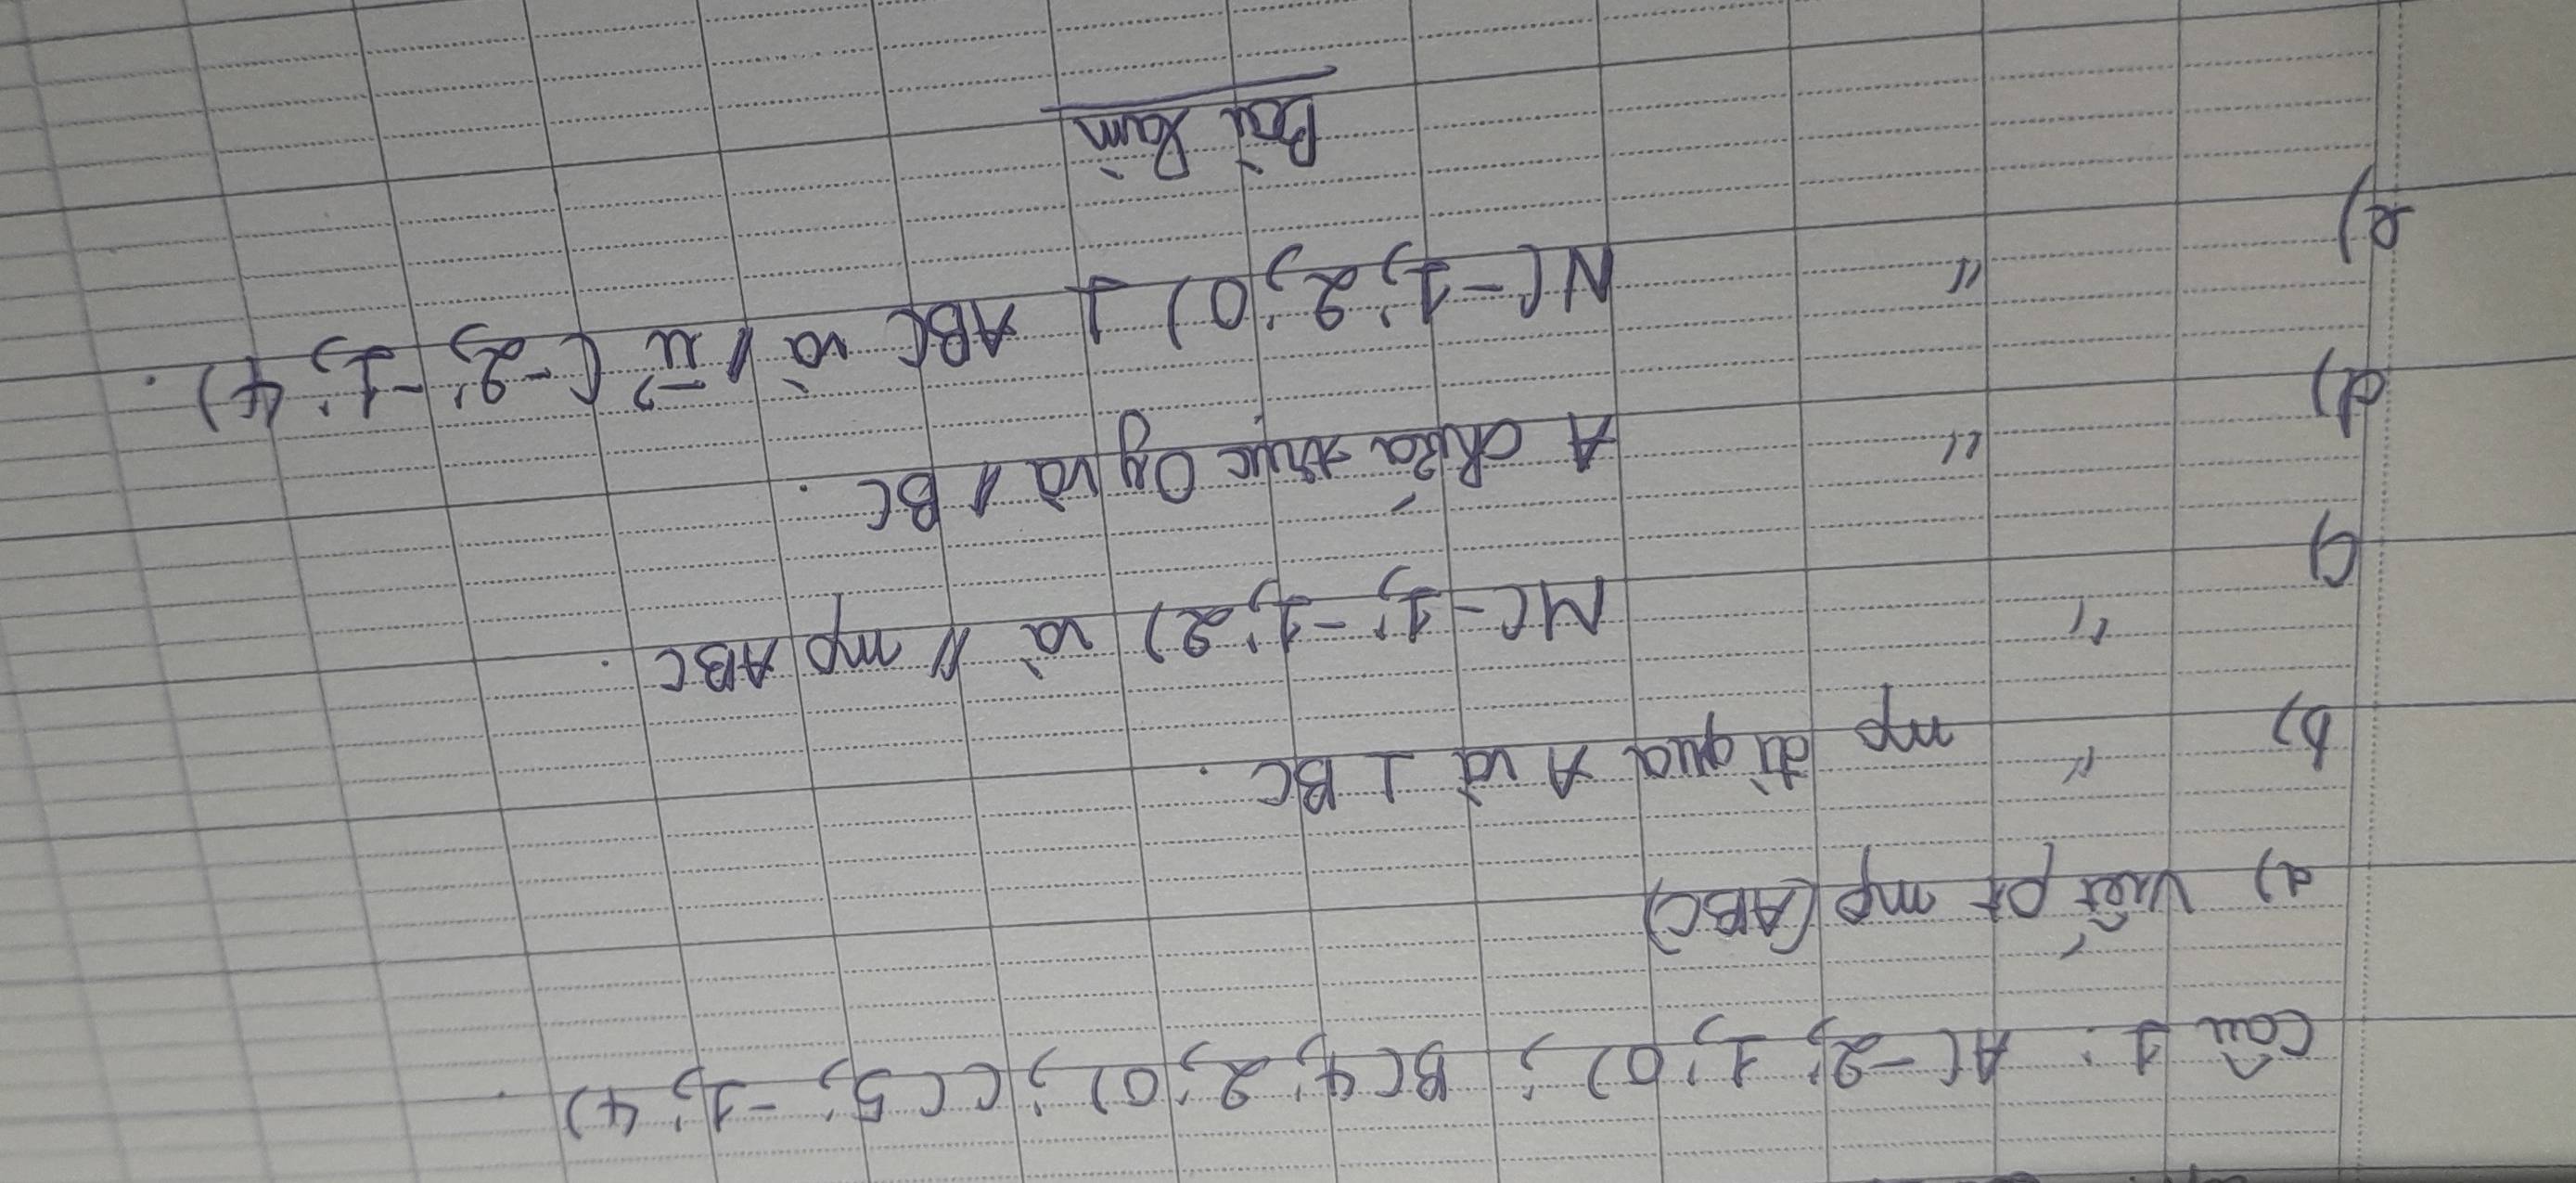 Câu 1: A(-2; 1; 0); B(4; 2; 0); C(5; -1; 4).
a) Viết pt mp (ABC)
b) " mp đi qua A và ⊥ BC.
c) " M(-1; -1; 2) và // mp ABC.
d) " A chứa trục Oy và // BC.
e) " N(-1; 2; 0) ⊥ ABC và // u⃗ (-2; -1; 4).
Bài làm